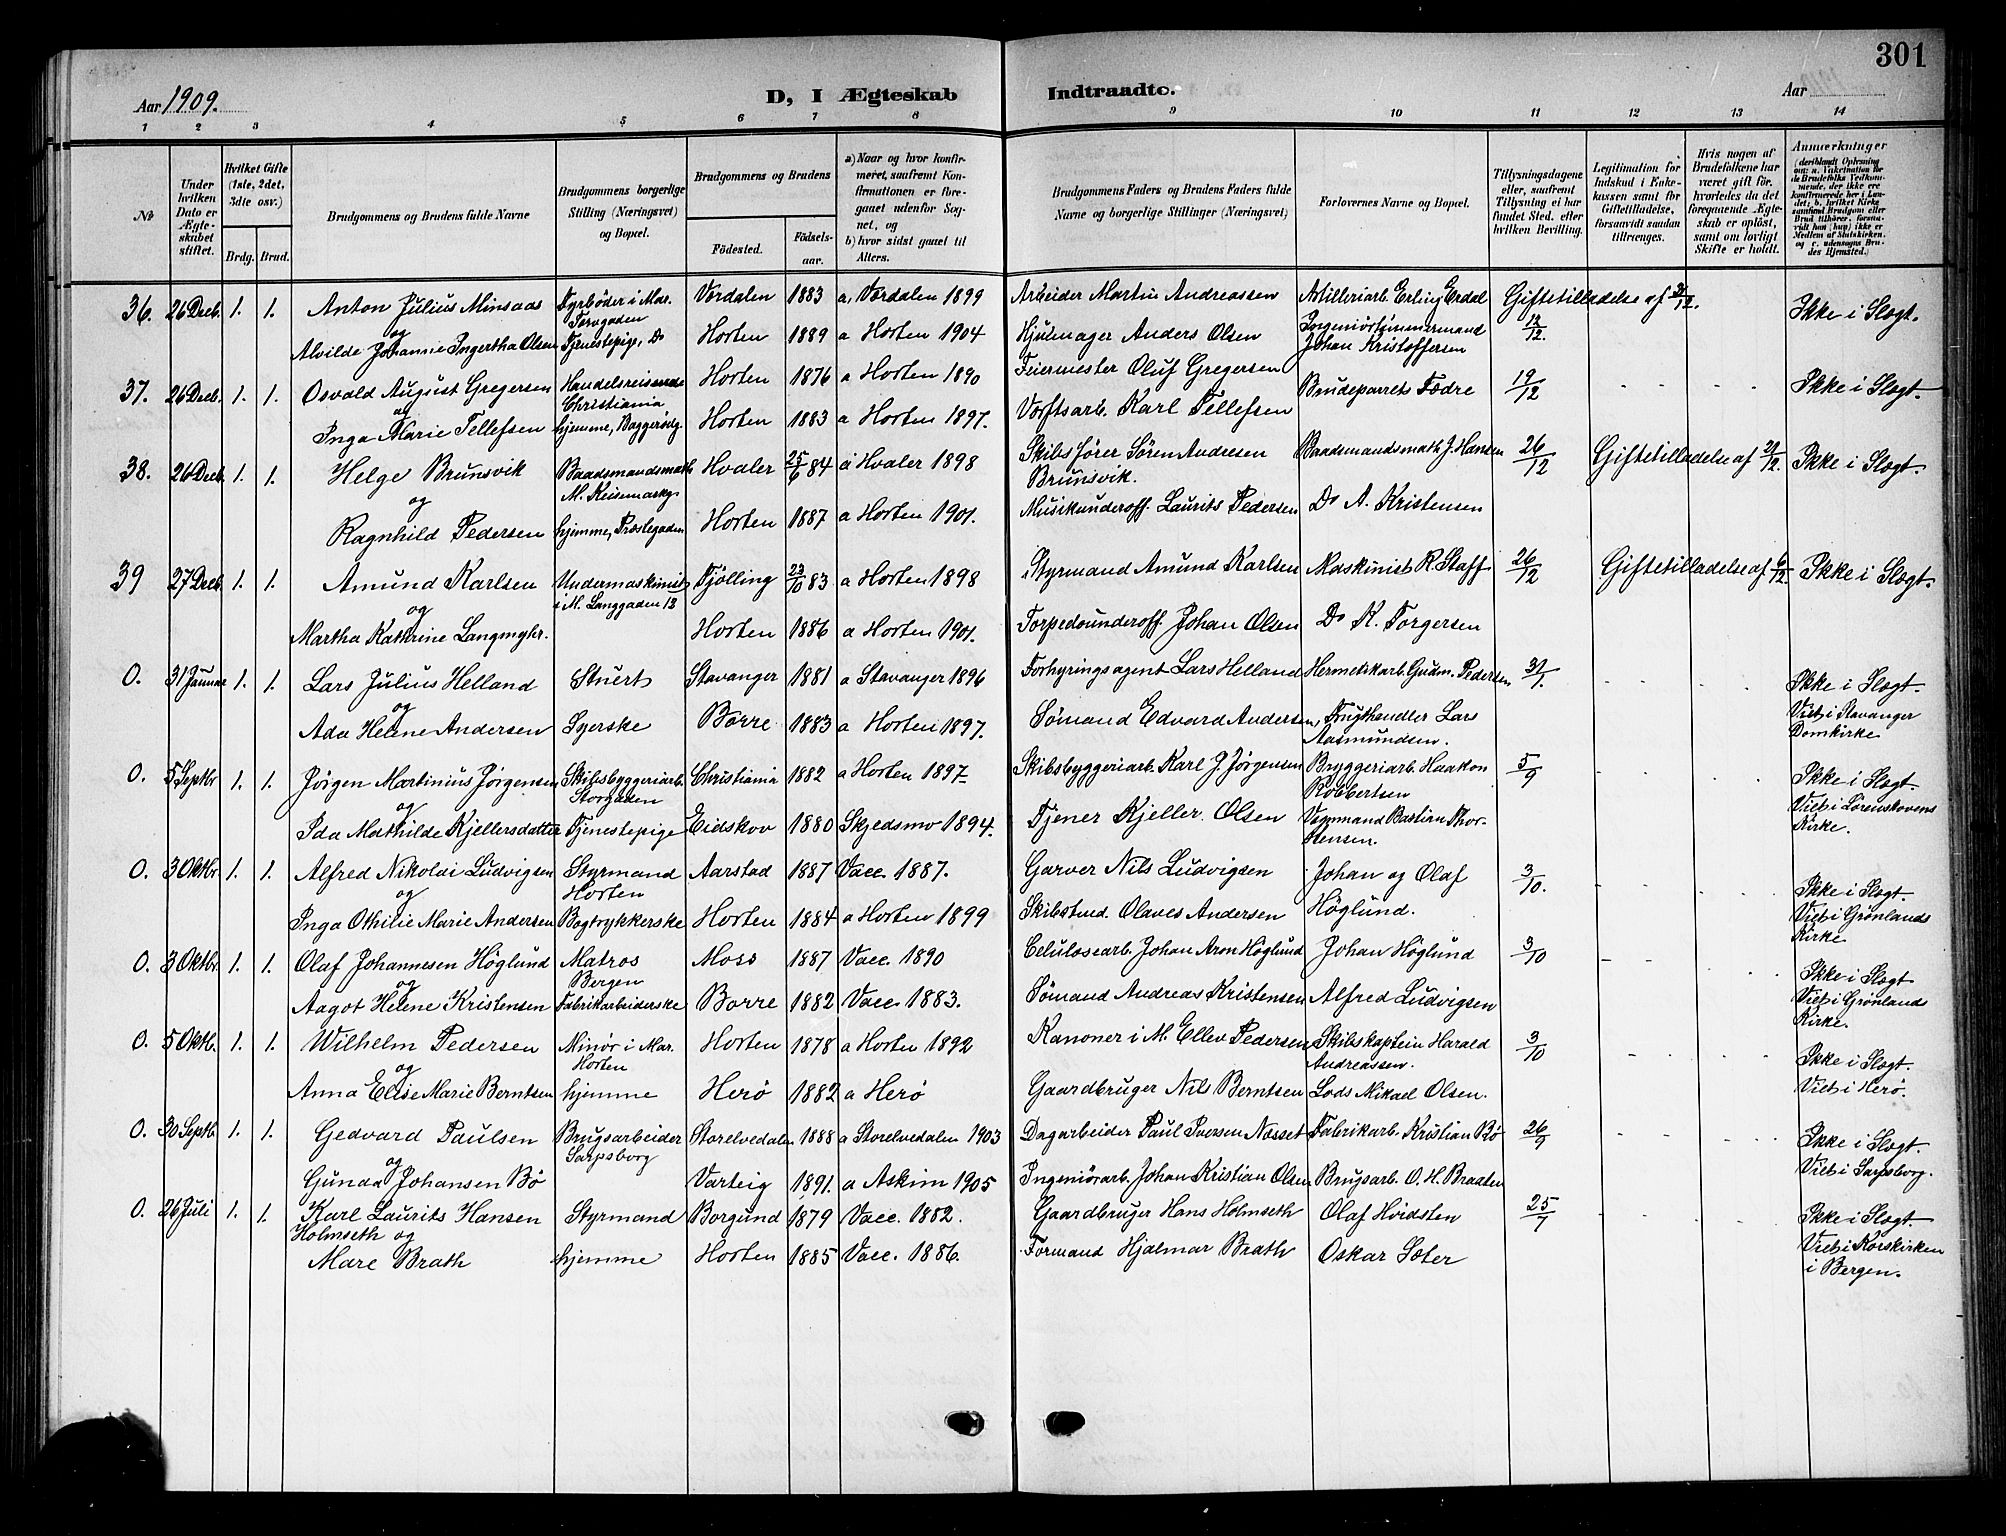 301
Aar 1909.
D, I Ægteskab Indtraadte.
Aar
1 2 3 4 5 6 7 8 9 10 11 12 13 14
No
Under hvilken Dato er Ægteskabet stiftet.
Hvilket Gifte (1ste, 2det, 3die osv.)
Brdg. Brud.
Brudgommens og Brudens fulde Navne
Brudgommens borgerlige Stilling (Næringsvei) og Bopæl.
Brudgommens og Brudens
Fødested.
Fødselsaar.
a) Naar og hvor konfirmeret, saafremt Konfirmationen er foregaaet udenfor Sognet, og
b) hvor sidst gaaet til Alters.
Brudgommens Faders og Brudens Faders fulde Navne og borgerlige Stillinger (Næringsvei)
Forlovernes Navne og Bopæl.
Tillysningsdagene eller, saafremt Tillysning ei har fundet Sted, efter hvilken Bevilling.
Legitimation for Indskud i Enkekassen samt for Giftetilladelse, forsaavidt saadan tiltrænges.
Hvis nogen af Brudefolkene har været gift før, hvorledes da det foregaaende Ægteskab er opløst, samt om lovligt Skifte er holdt.
Anmærkninger
36. 26 Decb. 1. 1. Anton Julius Minsaas Fyrbøder i Mar. Værdalen 1883 a. Værdalen 1899 Arbeider Martin Andreassen Artilleriarb. Erling Erdal Giftetilladelse af Ikke i Slægt.
og
Alvilde Johannie Ingertha Olsen Tjenestepige, Do Horten 1889 a Horten 1904 Hjulmager Anders Olsen Ingeniørtømmermand Johan Kristoffersen 12/12.
37. 26 Decb. 1. 1. Osvald August Gregersen Handelsreisende Christiania Horten 1876 a Horten 1890 Feiermester Oluf Gregersen Brudeparrets Fædre 19/12 Ikke i Slægt.
og
Inga Marie Tellefsen hjemme, Horten 1883 a Horten 1897. Værftsarb. Karl Tellefsen
38. 26 Decb. 1. 1. Helge Brunsvik Baadsmandsmath Hvaler 25/6 84 a Hvaler 1898 Skibsfører Søren Andresen Brunsvik. Baadsmandsmath J. Hansen 26/12 Giftetilladelse af Ikke i Slægt.
og
Ragnhild Pedersen hjemme, Præstegaden Horten 1887 a Horten 1901. Musikunderoff. Laurits Pedersen Do A. Kristensen
39 27 Decb. 1. 1. Amund Karlsen Undermaskinist i M. Langgaden 13 Tjølling 23/10 83 a Horten 1898 Styrmand Amund Karlsen Maskinist R. Staff 26/12 Giftetilladelse af 6/12 Ikke i Slægt.
og
Martha Kathrine Langmyhr. Horten 1886 a Horten 1901. Torpedounderoff. Johan Olsen Do K. Torgersen
0. 31 Januar 1. 1. Lars Julius Helland Stuert Stavanger 1881 a Stavanger 1896 Forhyringsagent Lars Helland Hermetikarb. Gudm. Pedersen 31/1. Ikke i Slægt.
og
Ada Helene Andersen Syerske Borre 1883 a Horten 1897. Sømand Edvard Andersen, Frugthandler Lars Aasmundsen. Viet i Stavanger Domkirke
0. 5 Septbr 1. 1. Jørgen Martinius Jørgensen Skibsbyggeriarb. Storgaden Christiania 1882 a Horten 1897 Skibsbyggeriarb. Karl J. Jørgensen Bryggeriarb. Haakon Robbertsen 5/9 Ikke i Slægt.
og
Ida Mathilde Kjellersdatter Tjenestepige Eidskov 1880 Skjedsmo 1894. Tjener Kjeller Olsen Vognmand Bastian Thorstensen. Viet i Lørenskovens Kirke.
0. 3 Oktbr 1. 1. Alfred Nikolai Ludvigsen Styrmand Horten Aarstad 1887 Vacc. 1887. Garver Nils Ludvigsen Johan og Olaf Höglund. 3/10. Ikke i Slægt.
og
Inga Othilie Marie Andersen Bogtrykkerske Horten 1884 a Horten 1899 Skibstmd. Olaves Andersen Viet i Grønlands Kirke
0. 3 Oktbr. 1. 1. Olaf Johannesen Höglund Matros Bergen Moss 1887 Vacc. 1890 Celulosearb. Johan Aron Höglund Johan Höglund 3/10 Ikke i Slægt
og
Aagot Helene Kristensen Fabrikarbeiderske Borre 1882 Vacc. 1883. Sømand Andreas Kristensen Alfred Ludvigsen Viet i Grønlands Kirke.
0. 5 Oktb. 1. 1. Wilhelm Pedersen Minør i Mar. Horten Horten 1878 a Horten 1892 Kanoner i M. Ellev Pedersen Skibskaptein Harald Andreassen. 3/10 Ikke i Slægt.
og
Anna Elise Marie Berntsen hjemme Herø 1882 a Herø Gaardbruger Nils Berntsen Lods Mikael Olsen. Viet i Herø.
0. 30 Septb. 1. 1. Gedvard Paulsen Brugsarbeider Sarpsborg Storelvedalen 1888 a Storelvedalen 1903 Dagarbeider Paul Næsset Fabrikarb. Kristian Bø 26/9 Ikke i Slægt.
og
Gunda Johansen Bø Varteig 1891. a Askim 1905 Ingeniørarb. Johan Kristian Olsen Brugsarb. O. H. Braaten Viet i Sarpsborg.
0. 26 Juli 1. 1. Karl Laurits Hansen Holmseth Styrmand Borgund 1879 Vacc. 1882. Gaardbruger Hans Holmseth Olaf Hvidsten 25/7 Ikke i Slægt.
og
Mare Brath hjemme Horten 1885 Vacc. 1886. Formand Hjalmar Brath Oskar Sæter Viet i Korskirken i Bergen.